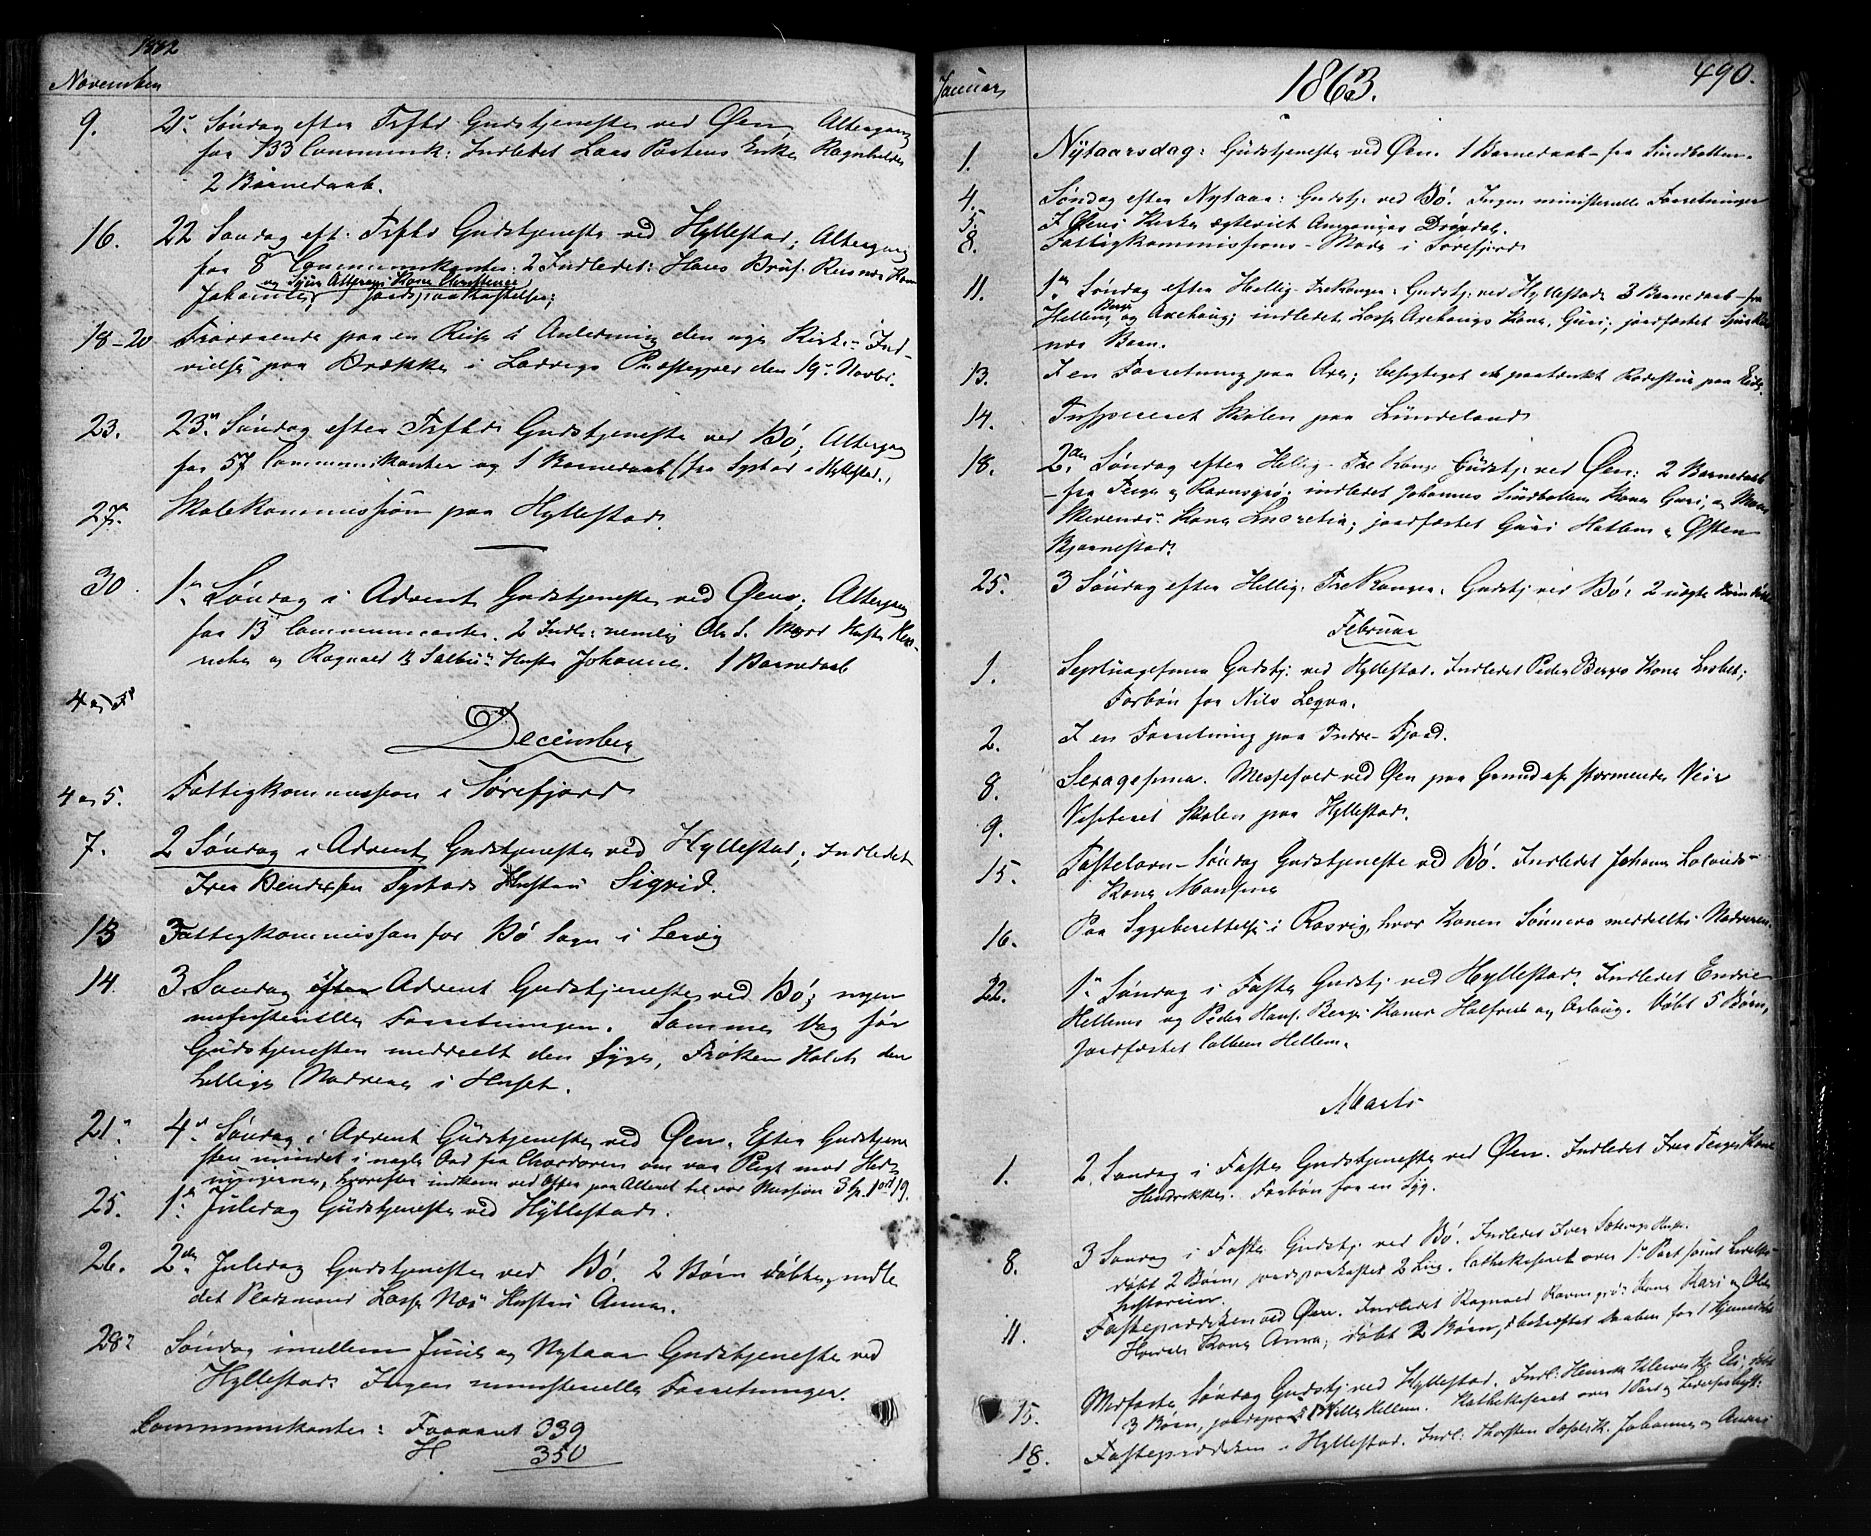 1862
November
9. 21de Søndag efter Trftd Gudstjeneste ved Øen, Altergang
for 133 Communik: Indledet Lars Enke Ragnhilde
2 Barnedaab.
16. 22 Søndag eft. Trftd Gudstjeneste ved Hyllestad; Altergang
for 8 Communikanter. 2 Indledet: Hans Kone
og Kone Christense
Johanne, Jordspaakastelse;
18-20 Fraværende paa en Reise i Anledning den nye Kirke-Ind-
vielse paa Brække i Ladvigs Præstegjeld den 19de Novbr.
23. 23de Søndag efter Trftd Gudstjeneste ved Bø; Altergang
for 57 Communikanter og 1 Barnedaab (fra Systad i Hyllestad.)
27de Skolekommission paa Hyllestad.
30. 1ste Søndag i Advent Gudstjeneste ved Øens. Altergang
for 13 Communicanter. 2 Indl: nemlig Ole S. Hustru
og Ragnald Hustru Johanne. 1 Barnedaab
4 og 5
December
4 og 5. Fattigkommission i Sørefjord
7. 2 Søndag i Advent Gudstjeneste ved Hyllestad; Indledet
Iver Systads Hustru Sigrid.
13 Fattigkommission for Bø Sogn i Lervig
14. 3. Søndag i Advent Gudstjeneste ved Bø; ingen
ministerielle Forretninger. Samme Dag før
Gudstjenesten meddeelt den syge, Frøken Holck den
hellige Nadvere i Huset.
21de 4de Søndag i Advent Gudstjeneste ved Øen. Efter Gudstjene-
sten mindet i nogle Ord fra Chordøren om vor Pligt mod Hed-
ningerne, hvorefter indkom ved Offer paa Alteret til vor Mission 3 Sp. 1 ort 19.
25. 1ste Juledag Gudstjeneste ved Hyllestad.
26. 2den Juledag Gudstjeneste ved Bø. 2 Børn døbte, indle-
det Pladsmand Lasse Næs Hustru Anna.
28de Søndag imellem Juul og Nytaar Gudstjeneste ved
Hyllestad. Ingen ministerielle Forretninger.
Communikanter: Foraaret 339
H 350
Januar 1863. 490.
1. Nytaarsdag: Gudstjeneste ved Øen. 1 Barnedaab fra Sundbotten.
4. Søndag efter Nytaar: Gudstj. ved Bø. Ingen ministerielle Forretninger
5. I Øens Kirke ægteviet
8. Fattigkommissions-Møde i Sørefjord
11. 1ste Søndag efter Hellig-Tre Konger. Gudstj. ved Hyllestad. 3 Barnedaab fra
Hellem, Berge og Axehoug; indledet Lasse Axehougs Kone, Guri; jordfæstet
Barn.
13. I en Forretning paa Aven; besigtiget et paatænkt Rodestue paa
14. Inspiceret Skolen paa Lundeland
18. 2den Søndag efter Hellig-Tre Konger Gudstj. ved Øen: 2 Barnedaab
fra Teige og Ravnsgrø; indledet Johannes Sundbottens Kone Guri, og
Kone Lucretia; jordfæstet Guri Hatlem og Østen
Bjørnestad.
25. 3 Søndag efter Hellig. Tre Konger. Gudstj. ved Bø: 2 uægte Børn
Februar
1. Septuagesima Gudstj: ved Hyllestad. Indledet Peder Berges Kone Lisbet;
Forbøn for Nils Leqva.
2. I en Forretning paa Indre-Fjord.
8. Sexagesima. Messefald ved Øen paa Grund af stormende Veir
9. Visiteret Skolen paa Hyllestad.
15. Fastelavn-Søndag Gudstjeneste ved Bø. Indledet Johans
Kone Monsine
16. Paa Sygeberettelse i Risvig, hvor Konen Sønneva meddeeltes Nadveren.
22. 1ste Søndag i Faste Gudstj. ved Hyllestad. Indledet Endre
Hellems og Peder Hans. Berges Koner Halfrid og Aslaug. Døbt 5 Børn,
Jordfæstet Colbein Hellem.
Marts
1. 2. Søndag i Faste Gudstjeneste ved Øen. Indledet Iver Teiges Kone
Hendrikke. Forbøn for en Syg.
8. 3 Søndag i Faste Gudstj. ved Bø. Indledet Iver Hustr.
døbt 2 Børn, jordpaakastet 2 Liig. Cathekiseret over 1ste Part samt
historien.
11. Fastepræken ved Øen. Indledet Ragnald Ravnsgrøs Kone Kari og Ole
Kone Anna; døbt 2 Børn, bekræftet Daaben for 1 Hjemmedøbt
15. Midfaste Søndag Gudstj. ved Hyllestad. Indl: Henrik K. Eli; døbt
3 Børn, Hellem. Kathekiseret over 1 Part og
18. Fastepræken i Hyllestad. Indl: Thorsten K. Johanne og